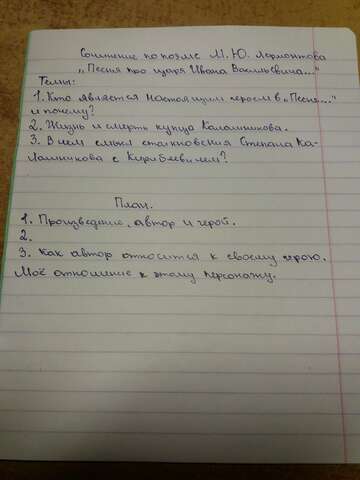 Сочинение по поэме М.Ю. Лермонтова
„Песня про царя Ивана Васильевича..."
Темы:
1. Кто является настоящим героем в „Песне..."
и почему?
2. Жизнь и смерть купца Калашникова.
3. В чем смысл столкновения Степана Ка-
лашникова с Кирибеевичем?
План.
1. Произведение, автор и герой.
2.
3. Как автор относится к своему герою.
Моё отношение к этому персонажу.